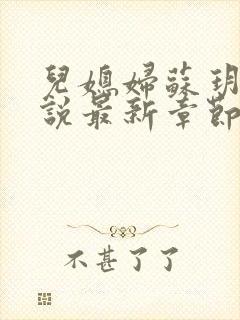 兒媳婦蘇玥
說最新章節
不甚了了